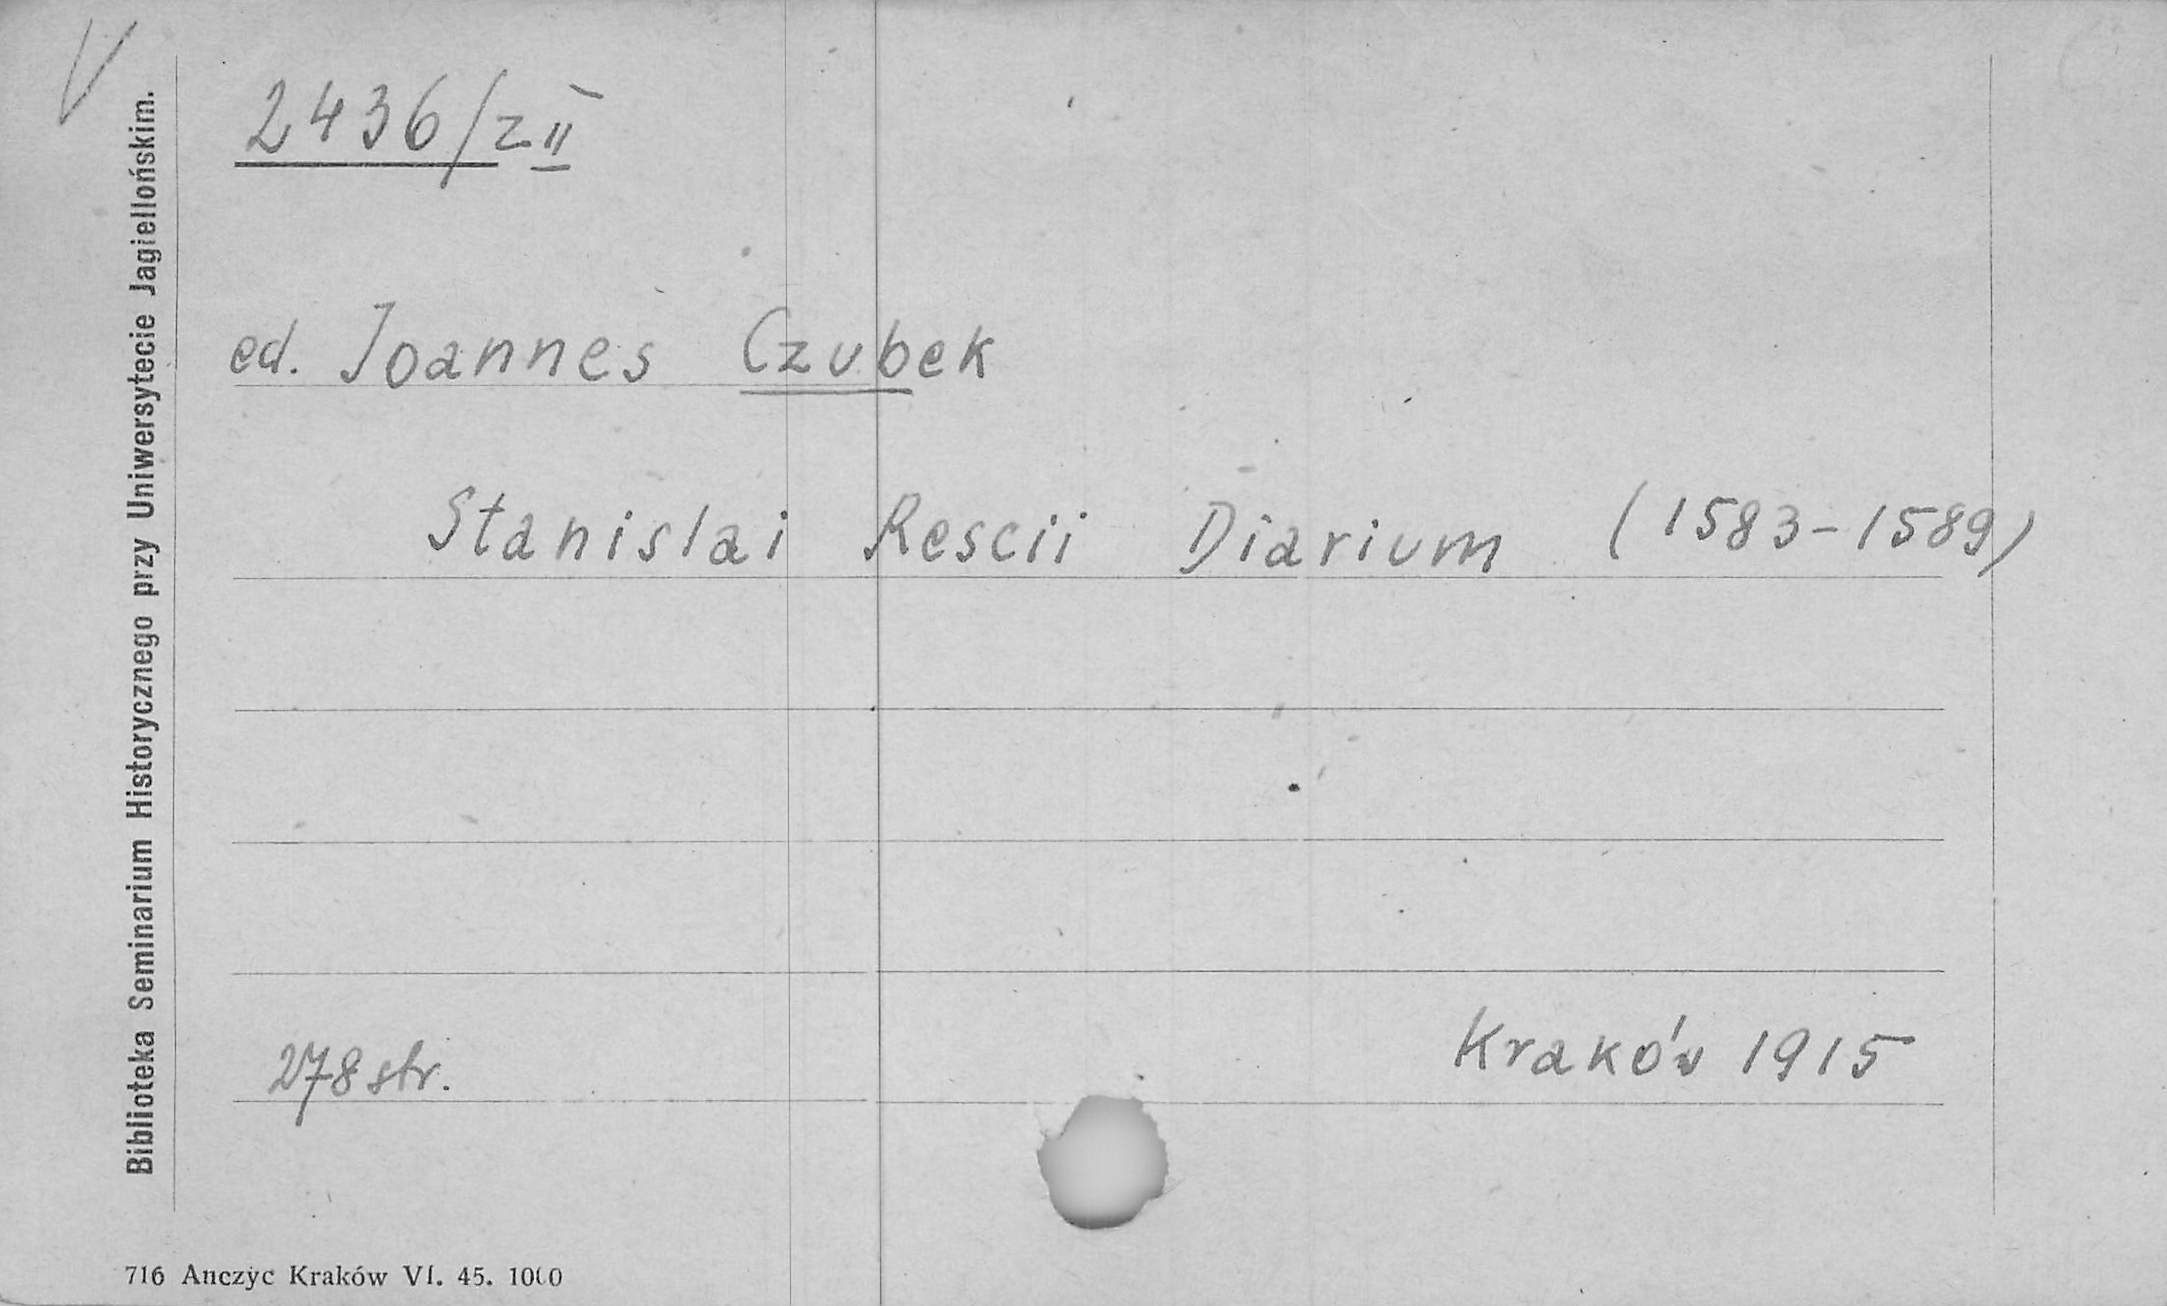 V
2436/z II
ed. Joannes Czubek
Stanislai Rescii Diarium (1583-1589)
278 str.
Kraków 1915
Biblioteka Seminarium Historycznego przy Uniwersytecie Jagiellońskim.
716 Anczyc Kraków VI. 45. 1000